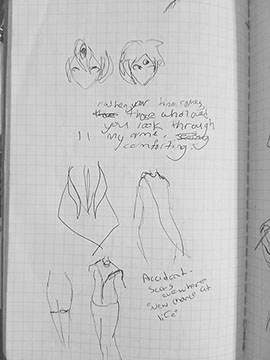 when your time comes,
those who loved
you look through
my arms,
comforting
Accident -
Scars
everywhere
"new chance at
life"